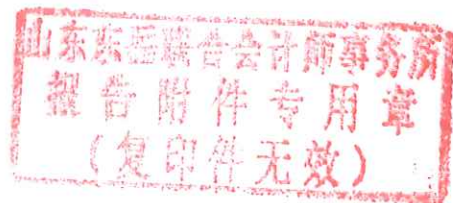 山东东岳联合会计师事务所
报告附件专用章
(复印件无效)